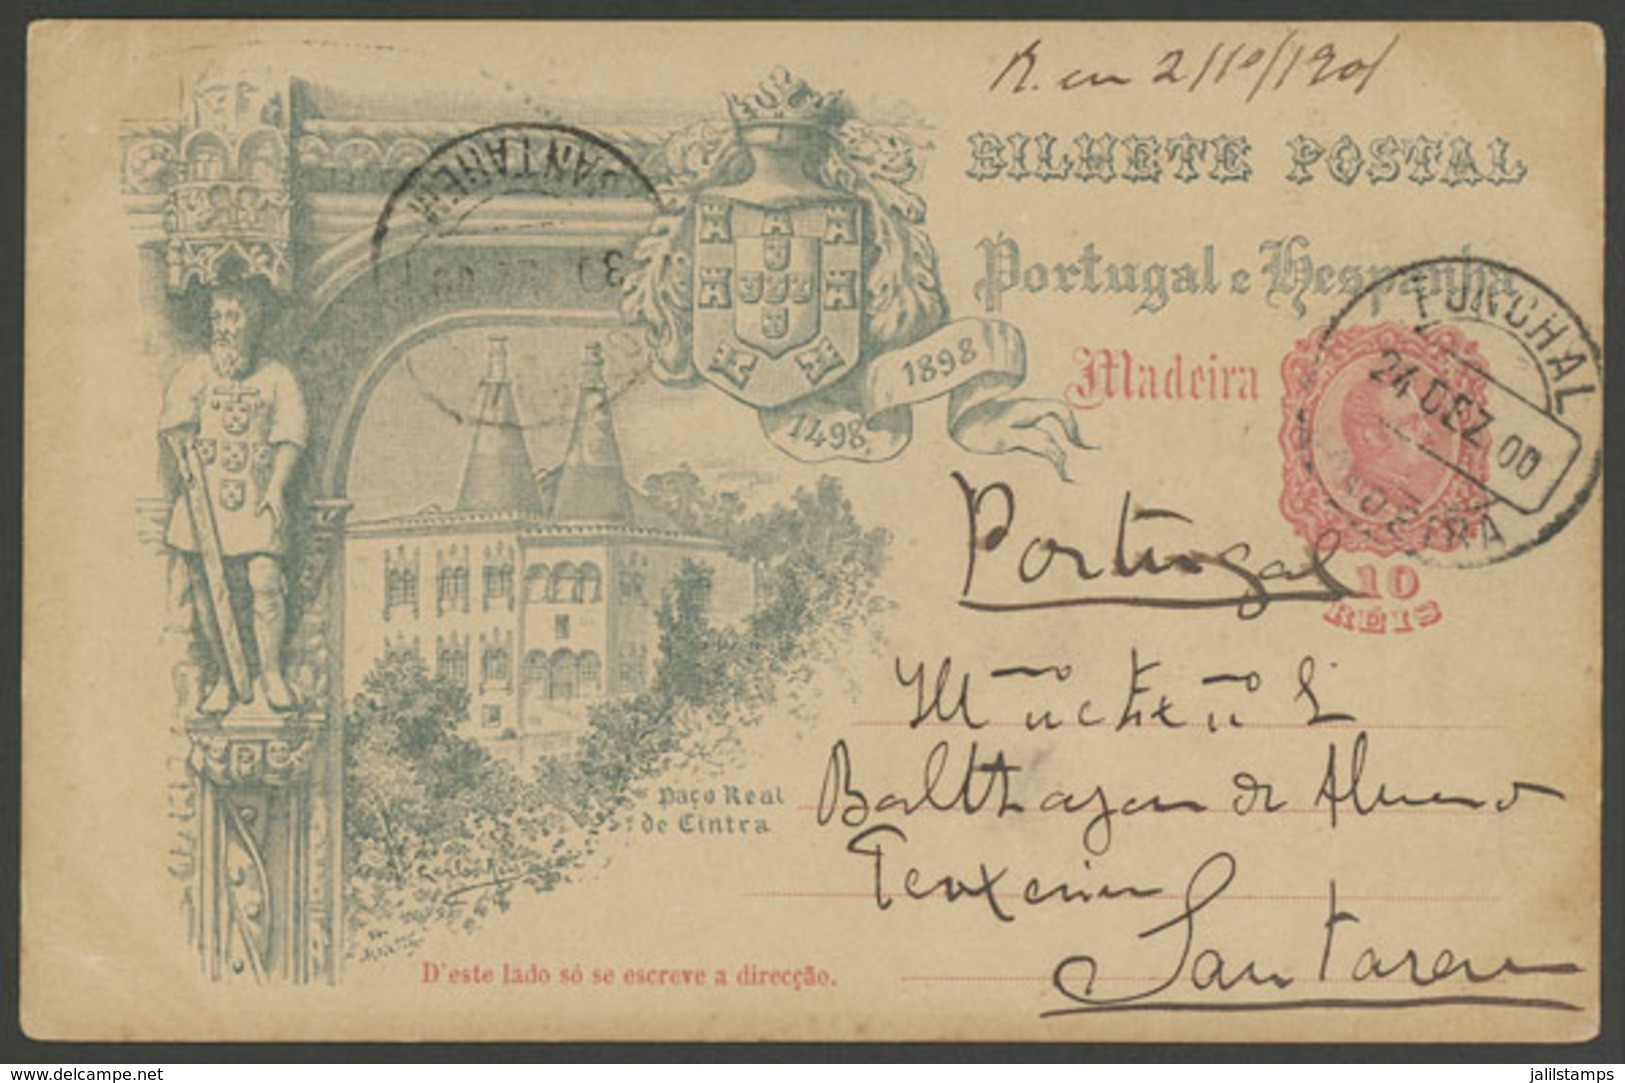 R. em 2/10/1901
BILHETE POSTAL
Portugal e Hespanha
Madeira
FUNCHAL
24 DEZ 00
MADEIRA
10
RÉIS
SANTAREM
30
1898
1498
Portugal
Balthazar de
Teixeira
Santarem
Paço Real
de Cintra
D'este lado só se escreve a direcção.
www.delcampe.net
jalilstamps